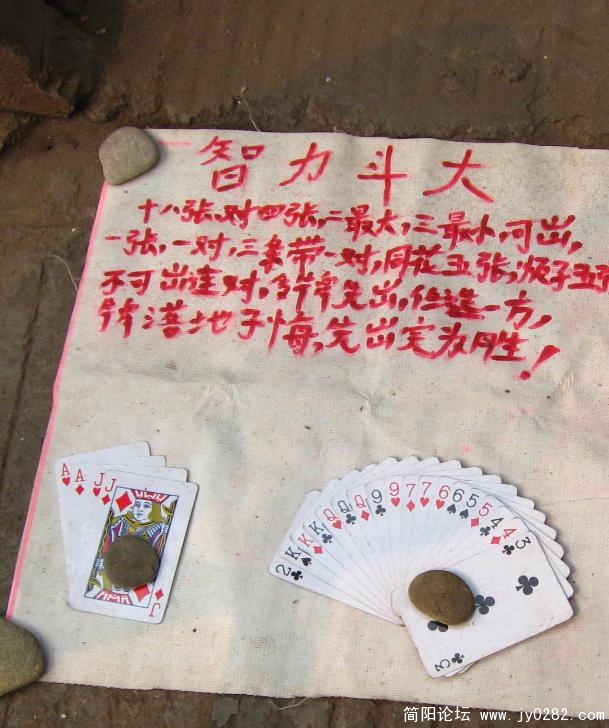 智力斗大
十八张,对四张,二最大,三最小,可出,
一张,一对,三条带一对,同花五张,顺子五张
不可出连对,多牌先出,任选一方,
牌落地子悔,先出完为胜!
A A J J
J
2 K K K Q Q Q 9 9 7 7 6 6 5 5 4 4 3
3
简阳论坛 www.jy0282.com